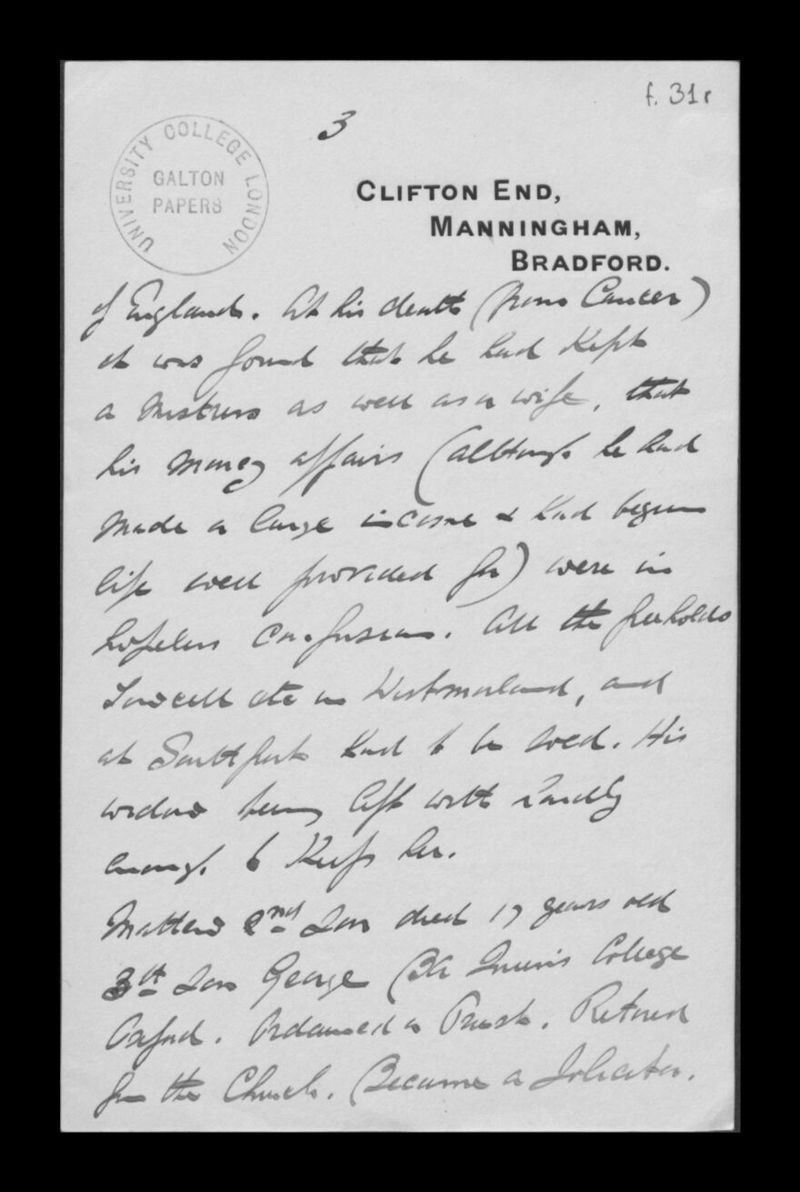 f. 31r
3
UNIVERSITY COLLEGE LONDON
GALTON
PAPERS
CLIFTON END,
MANNINGHAM,
BRADFORD.
of England. At his death (from Cancer)
it was found that he had Kept
a Mistress as well as a wife, that
his Money affairs (although he had
Made a large income & had begun
life well provided for) were in
hopeless Confusion. All the freeholds
in Westmorland, and
at Southport had to be sold. His
widow being left with hardly
enough to Keep her.
Matthew 2nd Son died 17 years old
3th Son George (BA Queens College
Oxford. Ordained a Priest. Retired
from the Church. Became a Solicitor.